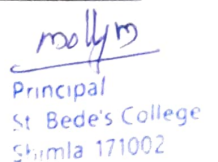 Mollym
Principal
St Bede's College
Shimla 171002